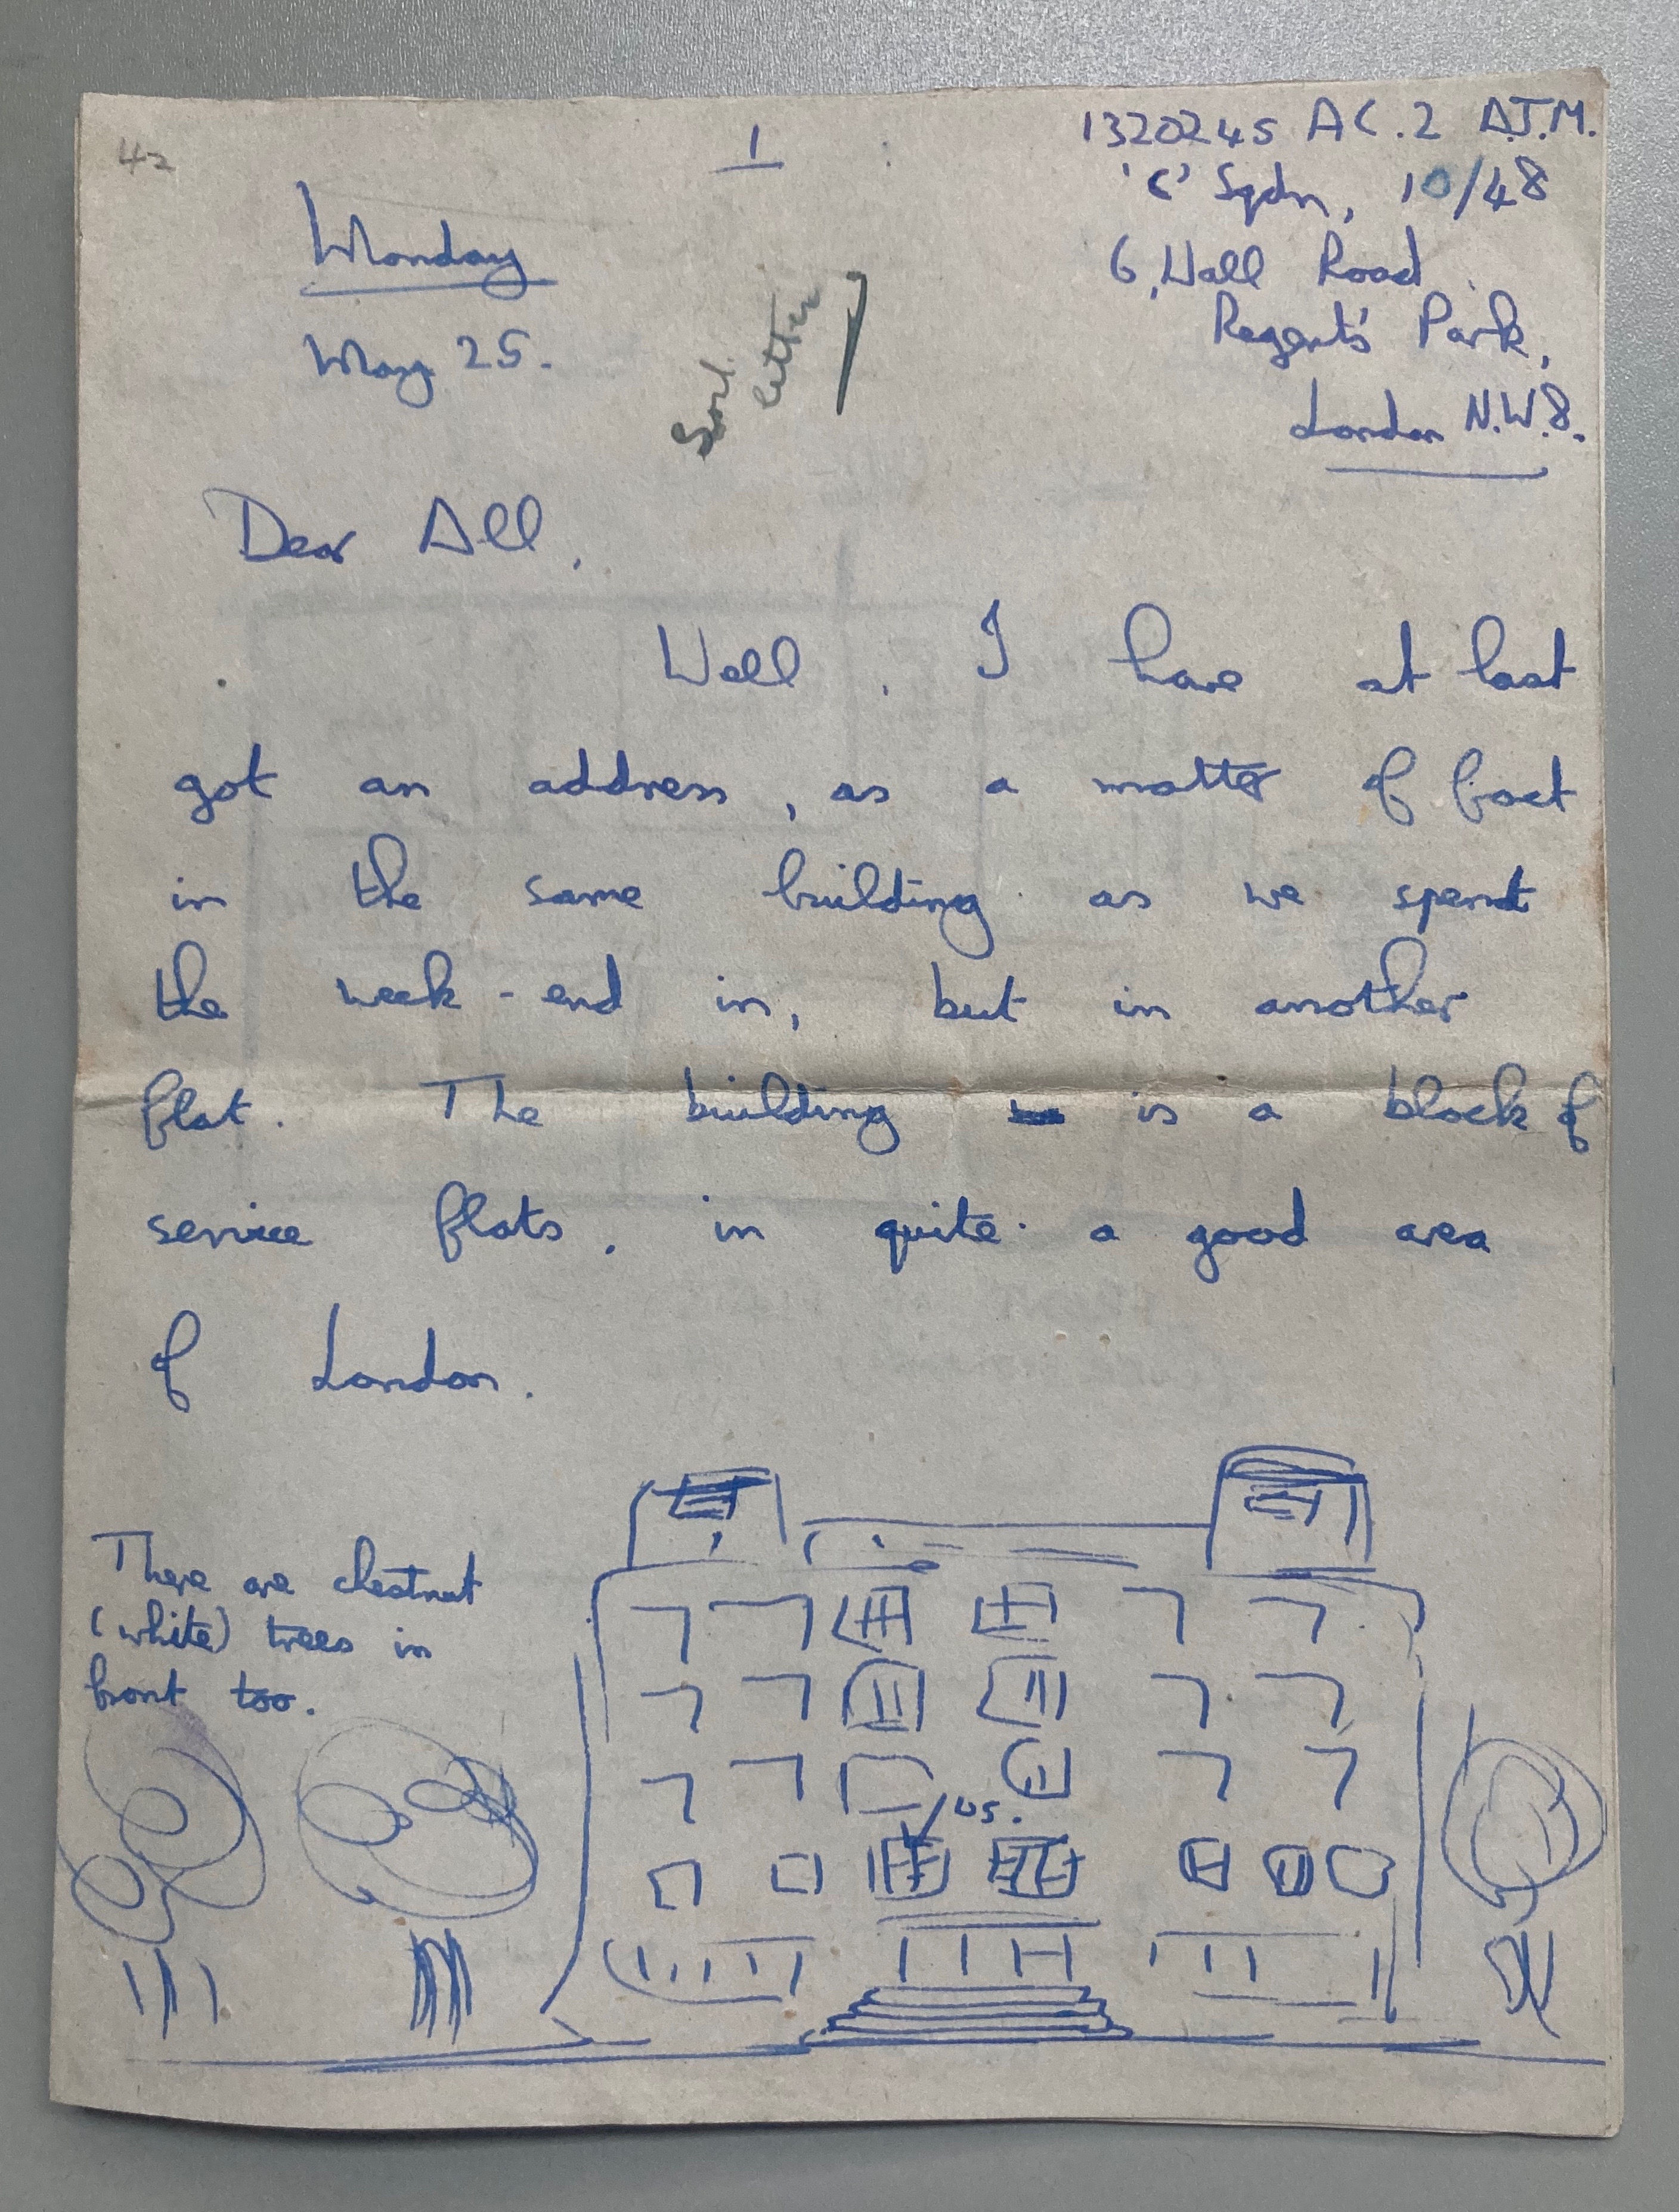 42
1
1320245 AC.2 A.J.M.
'C' Sqdn, 10/48
6, Hall Road
Regent's Park,
London N.W.8.
Monday
May 25.
letter
Dear All,
Well, I have at last
got an address, as a matter of fact
in the same building as we spent
the week-end in, but in another
flat. The building is a block of
service flats, in quite a good area
of London.
There are chestnut
(white) trees in
front too.
us.